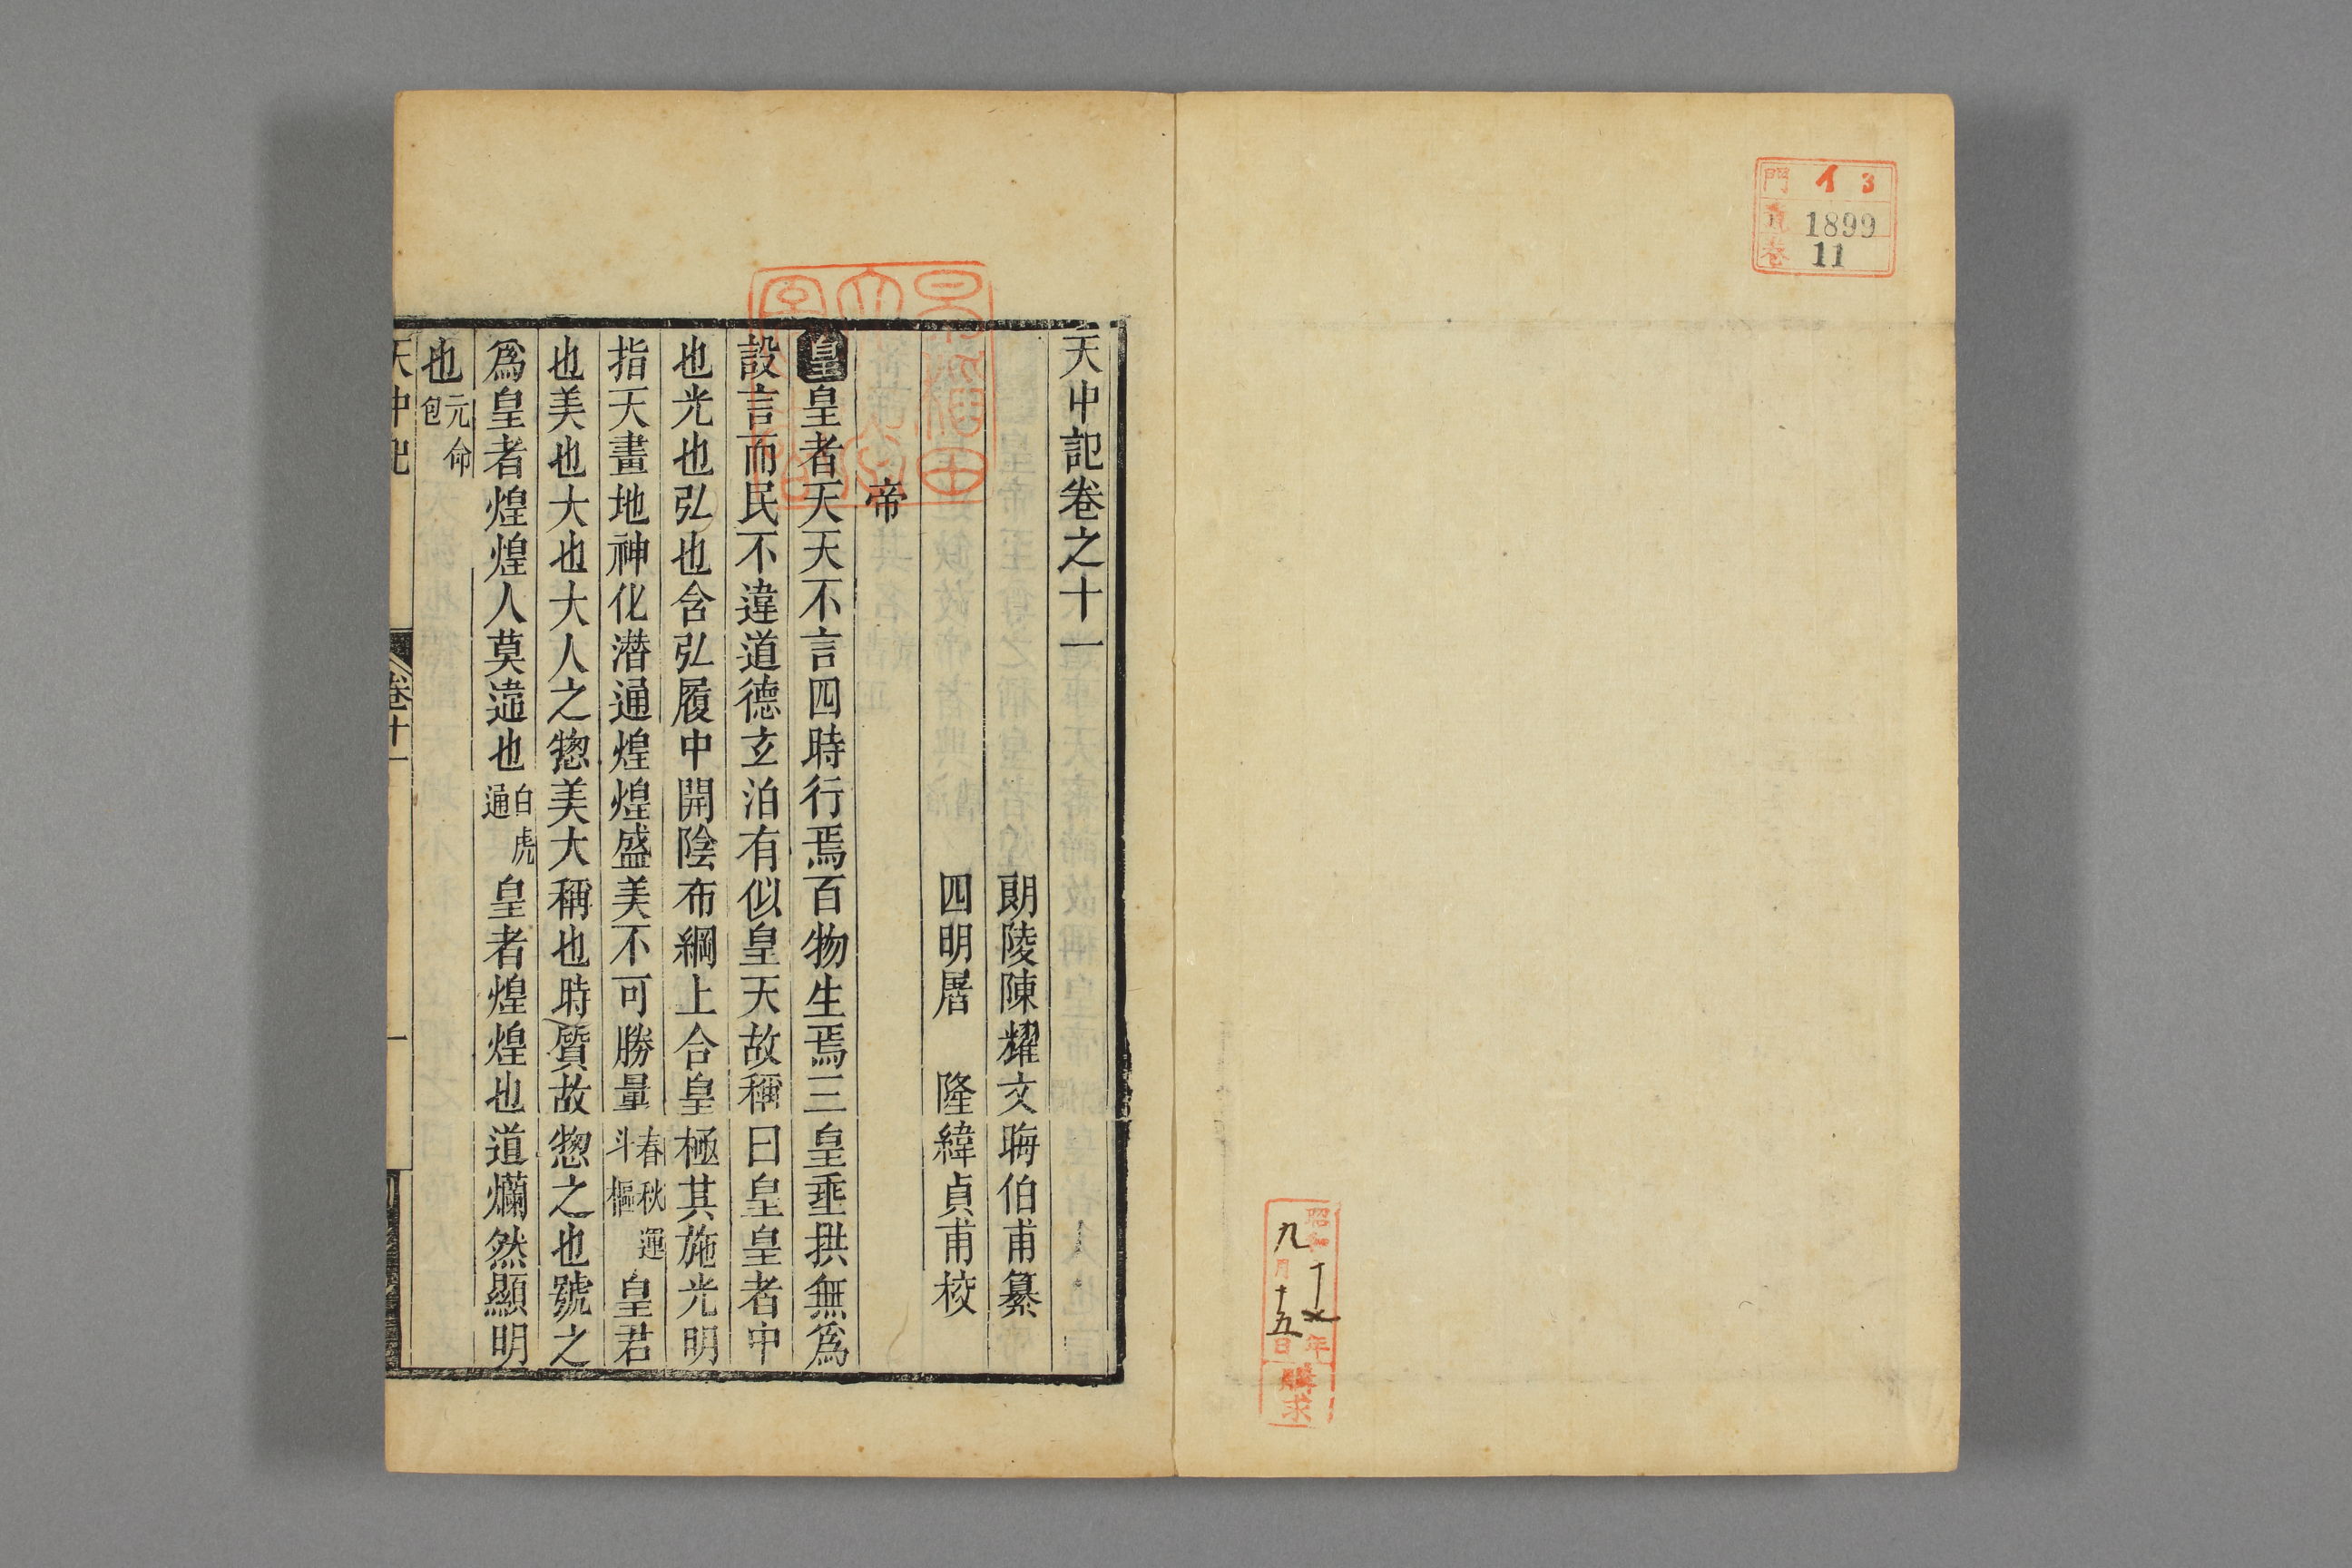 門 イ 3
1899
卷 11
昭和十七年
九月十五日
購求
天中記卷之十一
朗陵陳耀文晦伯甫纂
四明屠　隆緯貞甫校
帝
皇皇者天天不言四時行焉百物生焉三皇垂拱無爲
設言而民不違道德玄泊有似皇天故稱曰皇皇者中
也光也弘也含弘履中開陰布綱上合皇極其施光明
指天畫地神化潛通煌煌盛美不可勝量春秋運斗樞皇君
也美也大也大人之惣美大稱也時質故惣之也號之
爲皇者煌煌人莫違也白虎通皇者煌煌也道爛然顯明
也元命包
天中記
卷十一
一